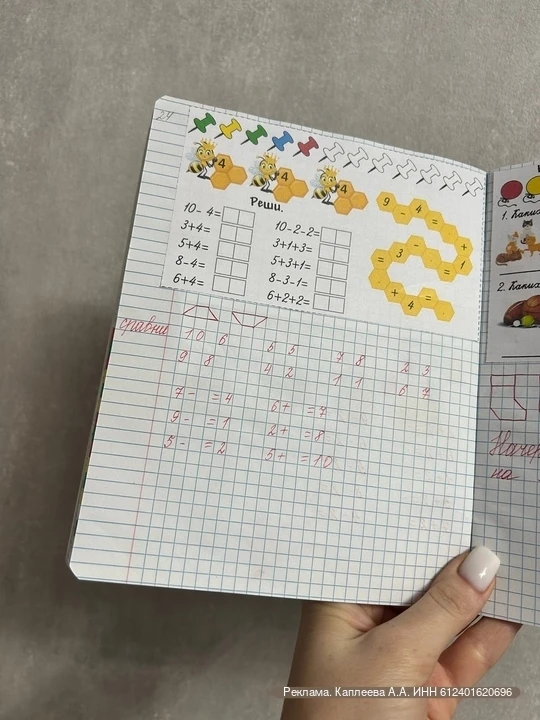 24
4 4 4
Реши.
10-4=
3+4=
5+4=
8-4=
6+4=
10-2-2=
3+1+3=
5+3+1=
8-3-1=
6+2+2=
9 - 4 = + 1 = - 3 = + 4 =
сравни
10 6 5 5 7 8 2 3
9 8 4 2 1 1 6 7
7- =4 6+ =7
9- =1 2+ =8
5- =2 5+ =10
1.
2.
на
Реклама. Каплеева А.А. ИНН 612401620696